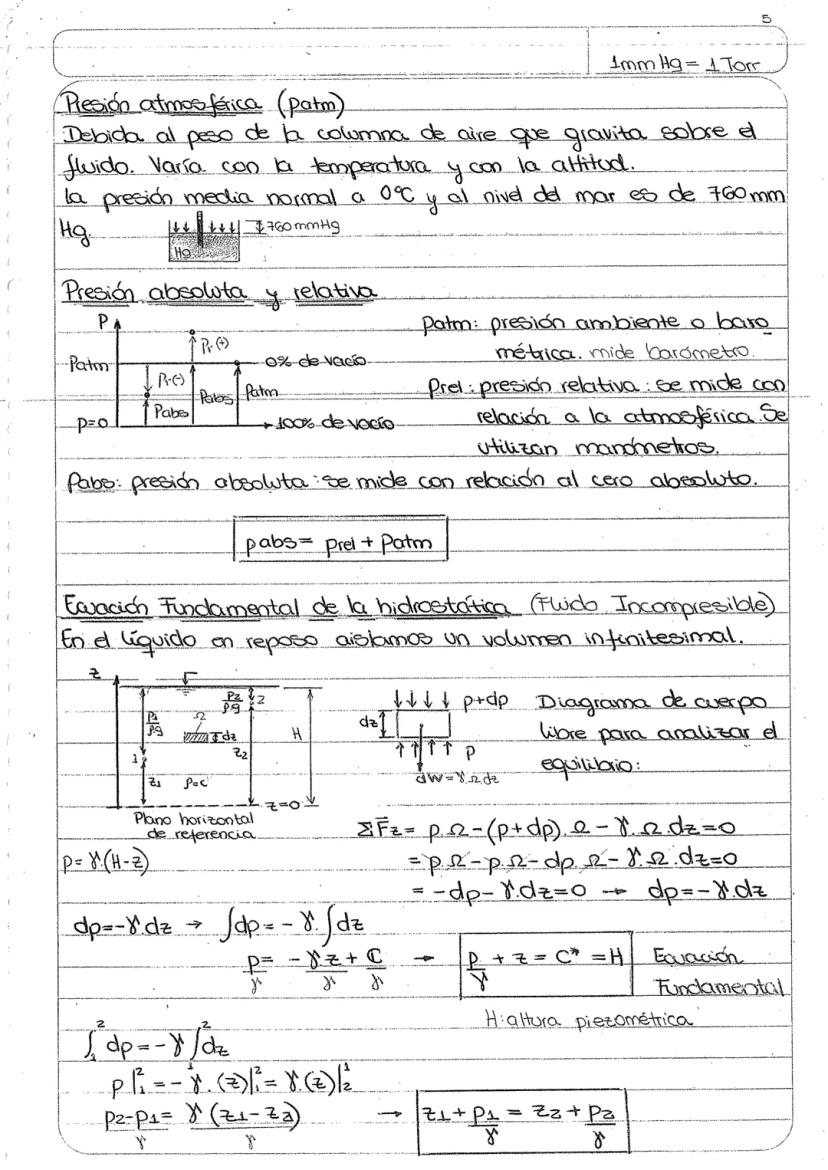 5
1mm Hg = 1 Torr
Presión atmosférica (patm)
Debida al peso de la columna de aire que gravita sobre el
fluido. Varía con la temperatura y con la altitud.
La presión media normal a 0°C y al nivel del mar es de 760 mm
Hg.
760 mmHg
Hg
Presión absoluta y relativa
P
Patm
p=0
Pr(-)
Pabs
Pr(+)
Pabs
Patm
0% de vacío
100% de vacío
Patm: presión ambiente o baro
métrica. mide barómetro.
Prel: presión relativa: se mide con
relación a la atmosférica. Se
utilizan manómetros.
Pabs: presión absoluta: se mide con relación al cero absoluto.
pabs = prel + Patm
Ecuación Fundamental de la hidrostática (Fluido Incompresible)
En el líquido en reposo aislamos un volumen infinitesimal.
z
P1/ρg
1
z1
Ω
dz
ρ=c
P2/ρg
2
z2
H
z=0
Plano horizontal
de referencia
p+dp
dz
p
dW=γ.Ω.dz
Diagrama de cuerpo
libre para analizar el
equilibrio:
p=γ.(H-z)
ΣF̄z = p.Ω-(p+dp).Ω-γ.Ω.dz=0
= p.Ω-p.Ω-dp.Ω-γ.Ω.dz=0
= -dp-γ.dz=0 → dp=-γ.dz
dp=-γ.dz → ∫dp = -γ.∫dz
p/γ = -γz/γ + C/γ → p/γ + z = C* = H Ecuación
Fundamental
H: altura piezométrica
∫₁² dp = -γ ∫₁² dz
p|₁² = -γ.(z)|₁² = γ.(z)|₂¹
p2-p1/γ = γ(z1-z2)/γ → z1 + p1/γ = z2 + p2/γ